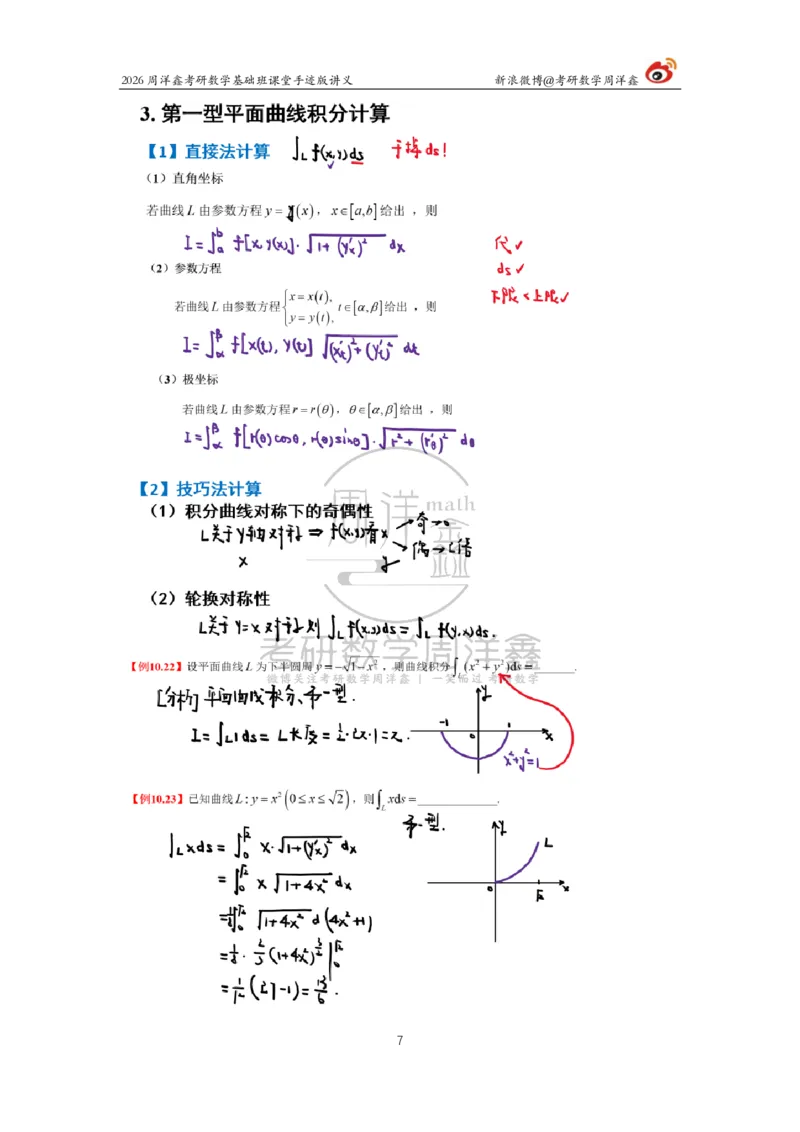 2026周洋鑫考研数学基础班课堂手迹版讲义 新浪微博@考研数学周洋鑫
3. 第一型平面曲线积分计算
【1】直接法计算 ∫_L f(x,y)ds 干掉ds!
（1）直角坐标
若曲线L由参数方程y=y(x)，x∈[a,b]给出，则
I=∫_a^b f[x,y(x)]·√(1+(y'x)²) dx 代✓
（2）参数方程 ds✓
下限<上限✓
若曲线L由参数方程{x=x(t), y=y(t), t∈[α,β]给出，则
I=∫_α^β f[x(t), y(t)] √((x't)²+(y't)²) dt
（3）极坐标
若曲线L由参数方程r=r(θ)，θ∈[α,β]给出，则
I=∫_α^β f[r(θ)cosθ, r(θ)sinθ]·√(r²+(r'θ)²) dθ
【2】技巧法计算
（1）积分曲线对称下的奇偶性
L关于y轴对称 ⇒ f(x,y)看x 奇→0
x y 偶→2倍
（2）轮换对称性
L关于y=x对称则∫_L f(x,y)ds=∫_L f(y,x)ds.
周洋鑫 math
考研数学周洋鑫
微博关注考研数学周洋鑫 | 一笑而过 考研数学
【例10.22】设平面曲线L为下半圆周y=-√(1-x²)，则曲线积分∫_L(x²+y²)ds=________.
[分析]平面曲线积分、第一型.
I=∫_L 1ds=L长度=½·2π·1=π.
-1 0 1 x y
x²+y²=1
【例10.23】已知曲线L:y=x²(0≤x≤√2)，则∫_L xds=______________.
第一型.
∫_L xds=∫_0^√2 x·√(1+(y'x)²) dx
y L 0 √2 x
=∫_0^√2 x√(1+4x²) dx
=⅛∫_0^√2 √(1+4x²) d(4x²+1)
=⅛·⅔(1+4x²)^(3/2)|_0^√2
=1/12(27-1)=13/6.
7